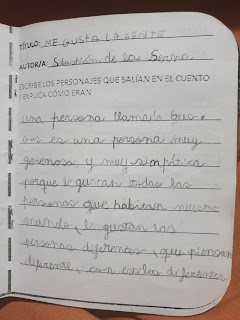 TÍTULO: ME GUSTA LA GENTE
AUTOR/A: Sebastián de la Serna
ESCRIBE LOS PERSONAJES QUE SALÍAN EN EL CUENTO
Y EXPLICA CÓMO ERAN
Una persona llamada Gus.
Gus es una persona muy
generosa y muy simpática
porque le gustan todas las
personas que habitan nuestro
mundo, le gustan las
personas diferentes, que piensan
diferente, con estilos diferentes